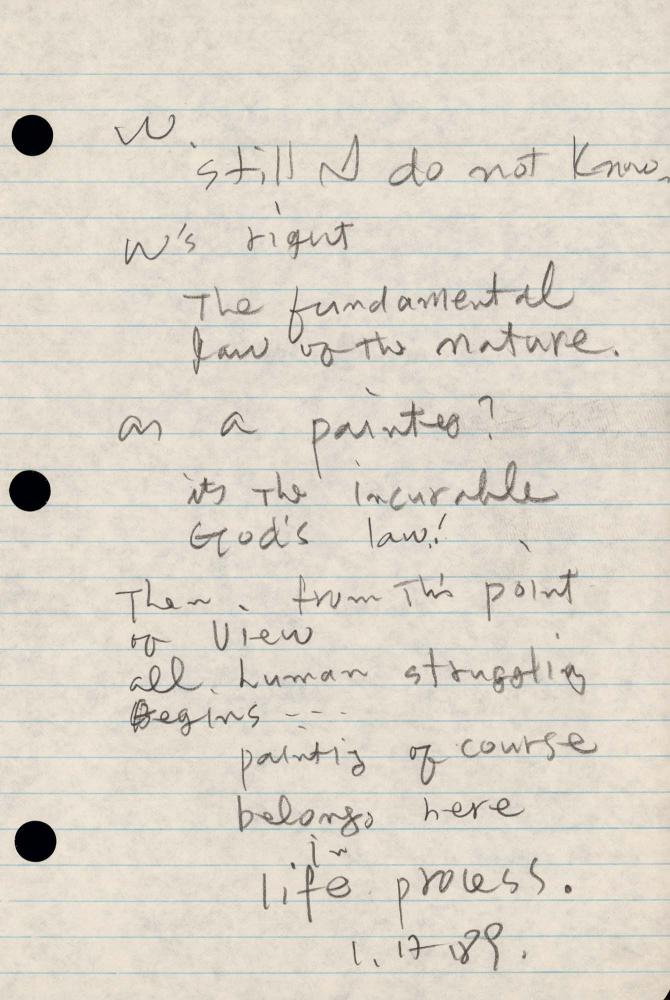 W
still I do not know.
W's right
The fundamental
law of the nature.
as a painter?
its the incurable
God's law!
Then, from this point
of view
all human struggling
Begins ---
painting of course
belongs here
in
life process.
1.17 89.